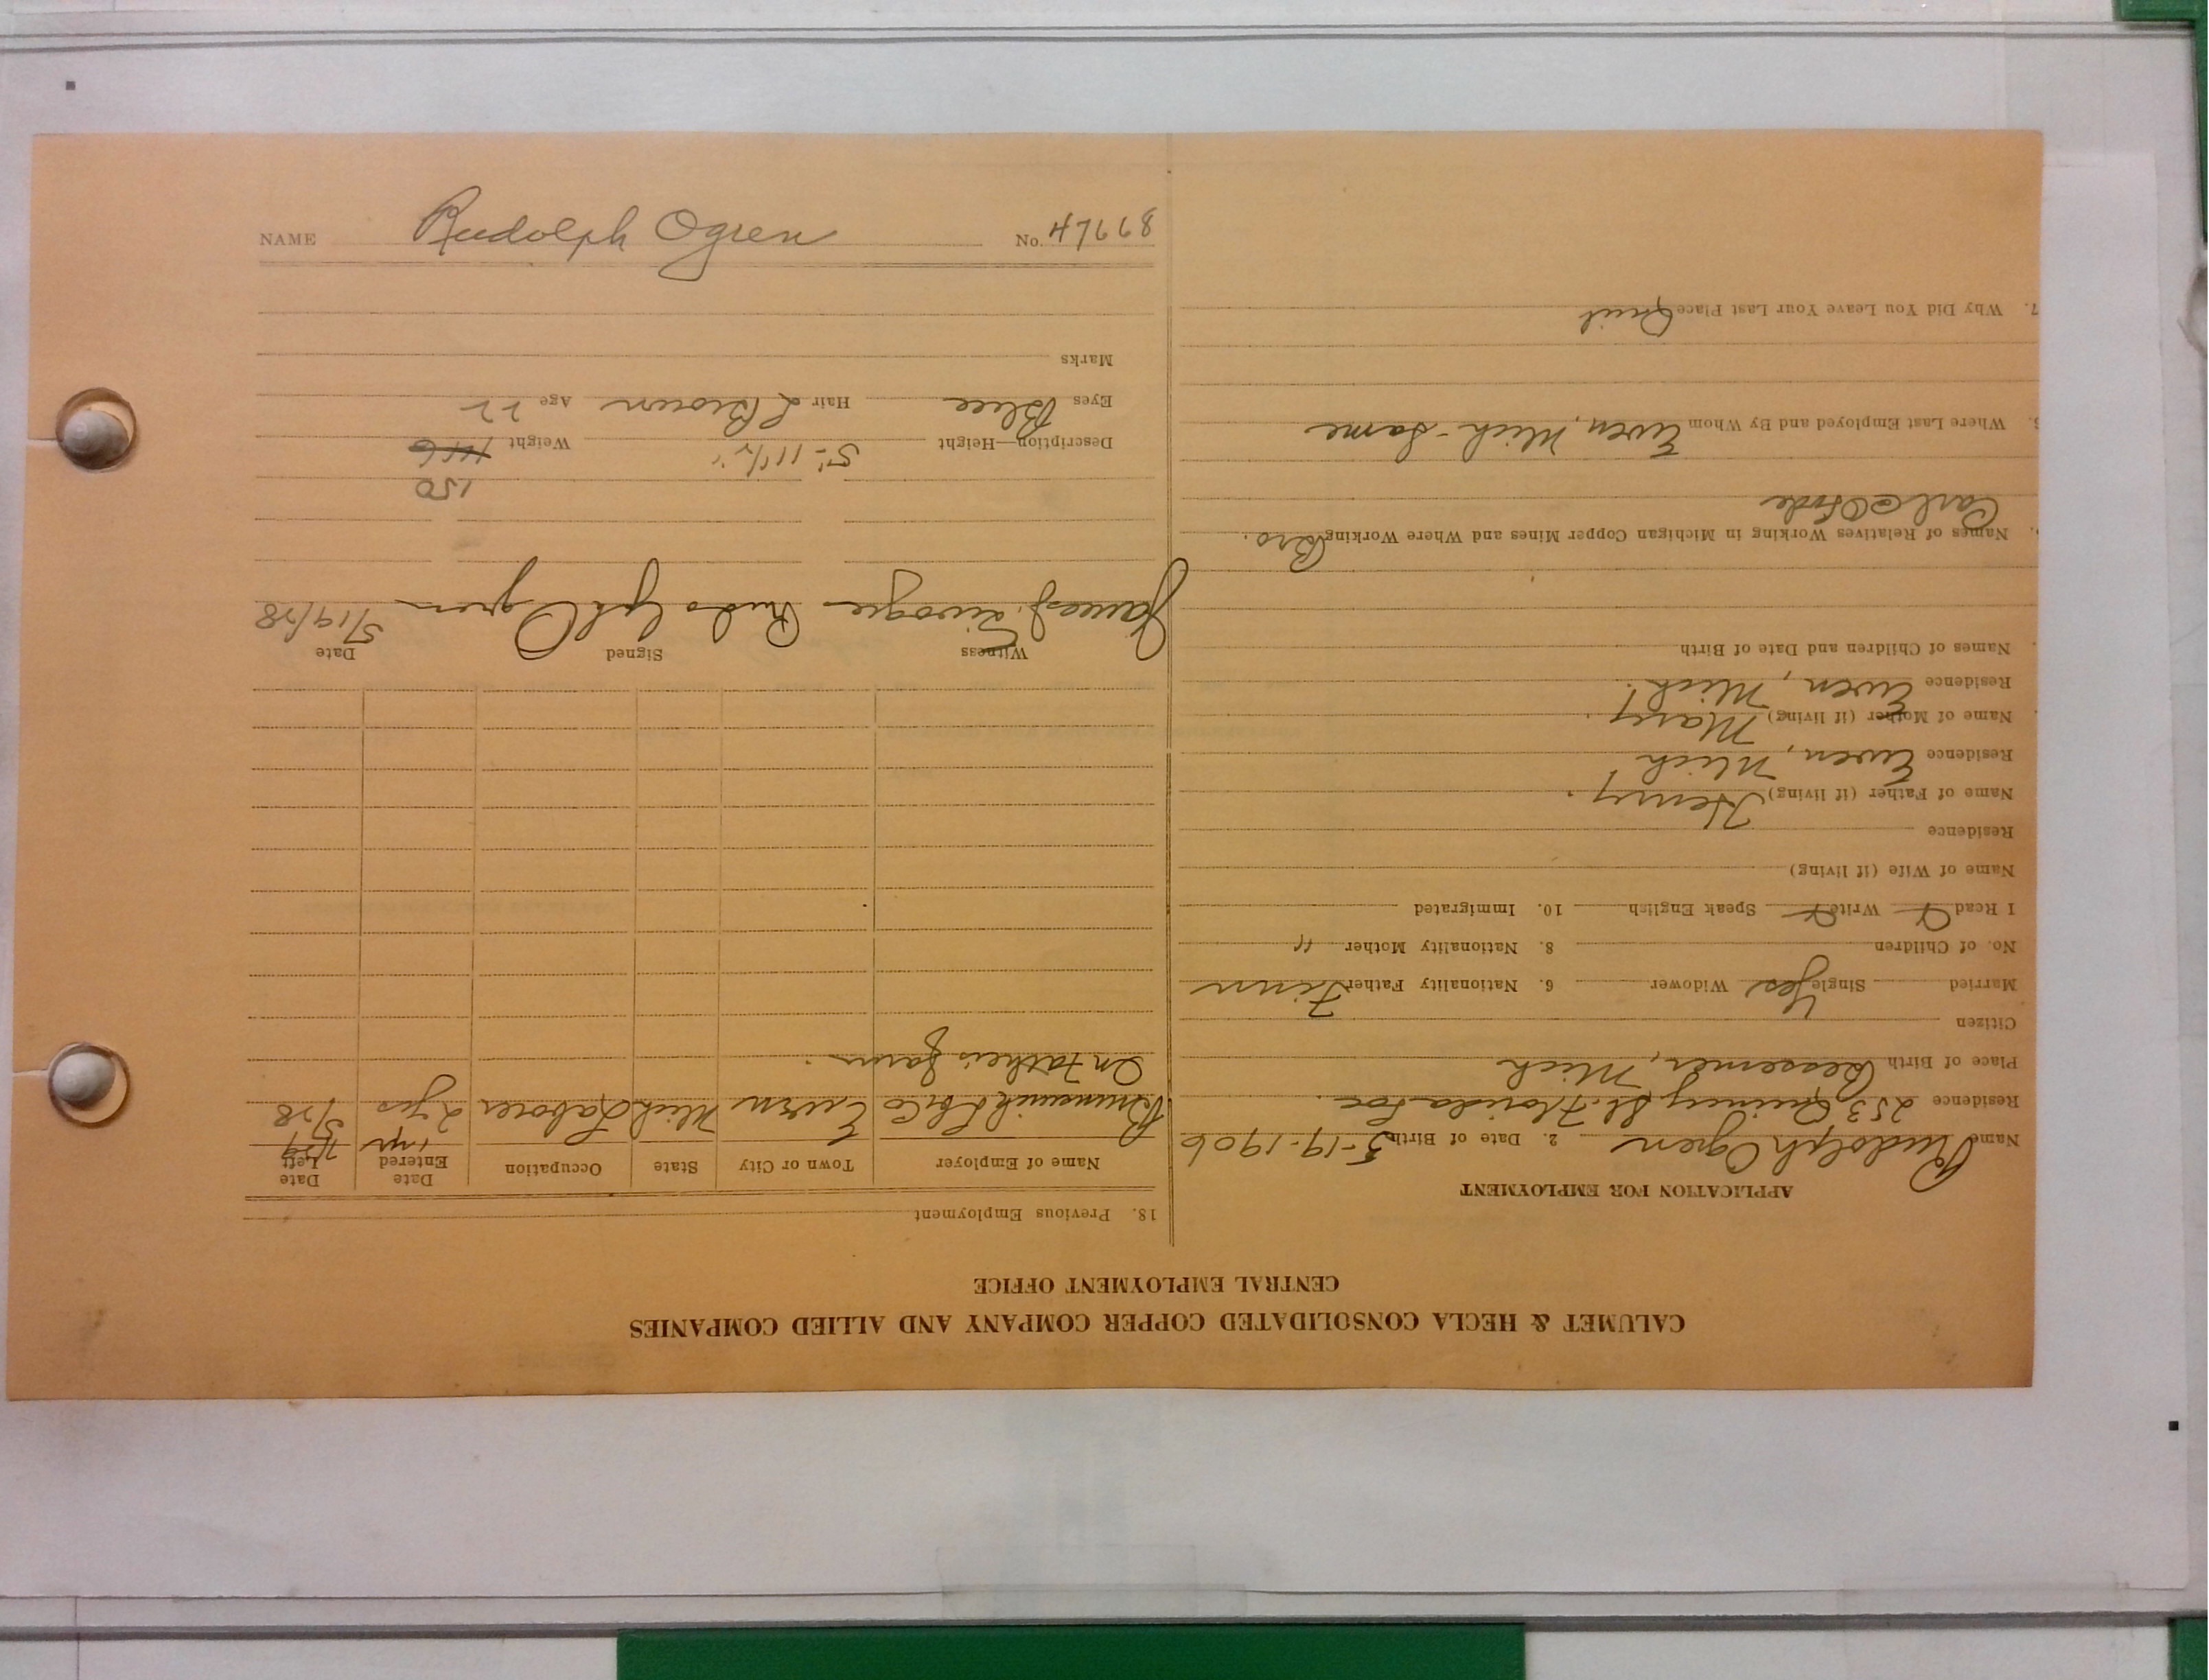 CALUMET & HECLA CONSOLIDATED COPPER COMPANY AND ALLIED COMPANIES
CENTRAL EMPLOYMENT OFFICE
APPLICATION FOR EMPLOYMENT
Name Rudolph Ogren 2. Date of Birth 5-19-1906
Residence 253 Quincy St. Florida Loc.
Place of Birth Bessemer, Mich
Citizen
Married Single Yes Widower 6. Nationality Father Finn
No. of Children 8. Nationality Mother "
I Read Write Speak English 10. Immigrated
Name of Wife (if living)
Residence
Name of Father (if living) Henry.
Residence Ewen, Mich!
Name of Mother (if living) Mary.
Residence Ewen, Mich!
Names of Children and Date of Birth
Names of Relatives Working in Michigan Copper Mines and Where Working Bro.
Carl @
Where Last Employed and By Whom Ewen, Mich - Same
7. Why Did You Leave Your Last Place Quit
18. Previous Employment
Name of Employer Town or City State Occupation Date Entered Date Left
Ewen Mich Laborer 2 yrs 5/28
On Father's farm.
Witness Signed Date
James J. Rudolph Ogren 5/19/28
150
Description—Height 5'- 11 1/2" Weight 146
Eyes Blue Hair L Brown Age 22
Marks
NAME Rudolph Ogren No. 47778